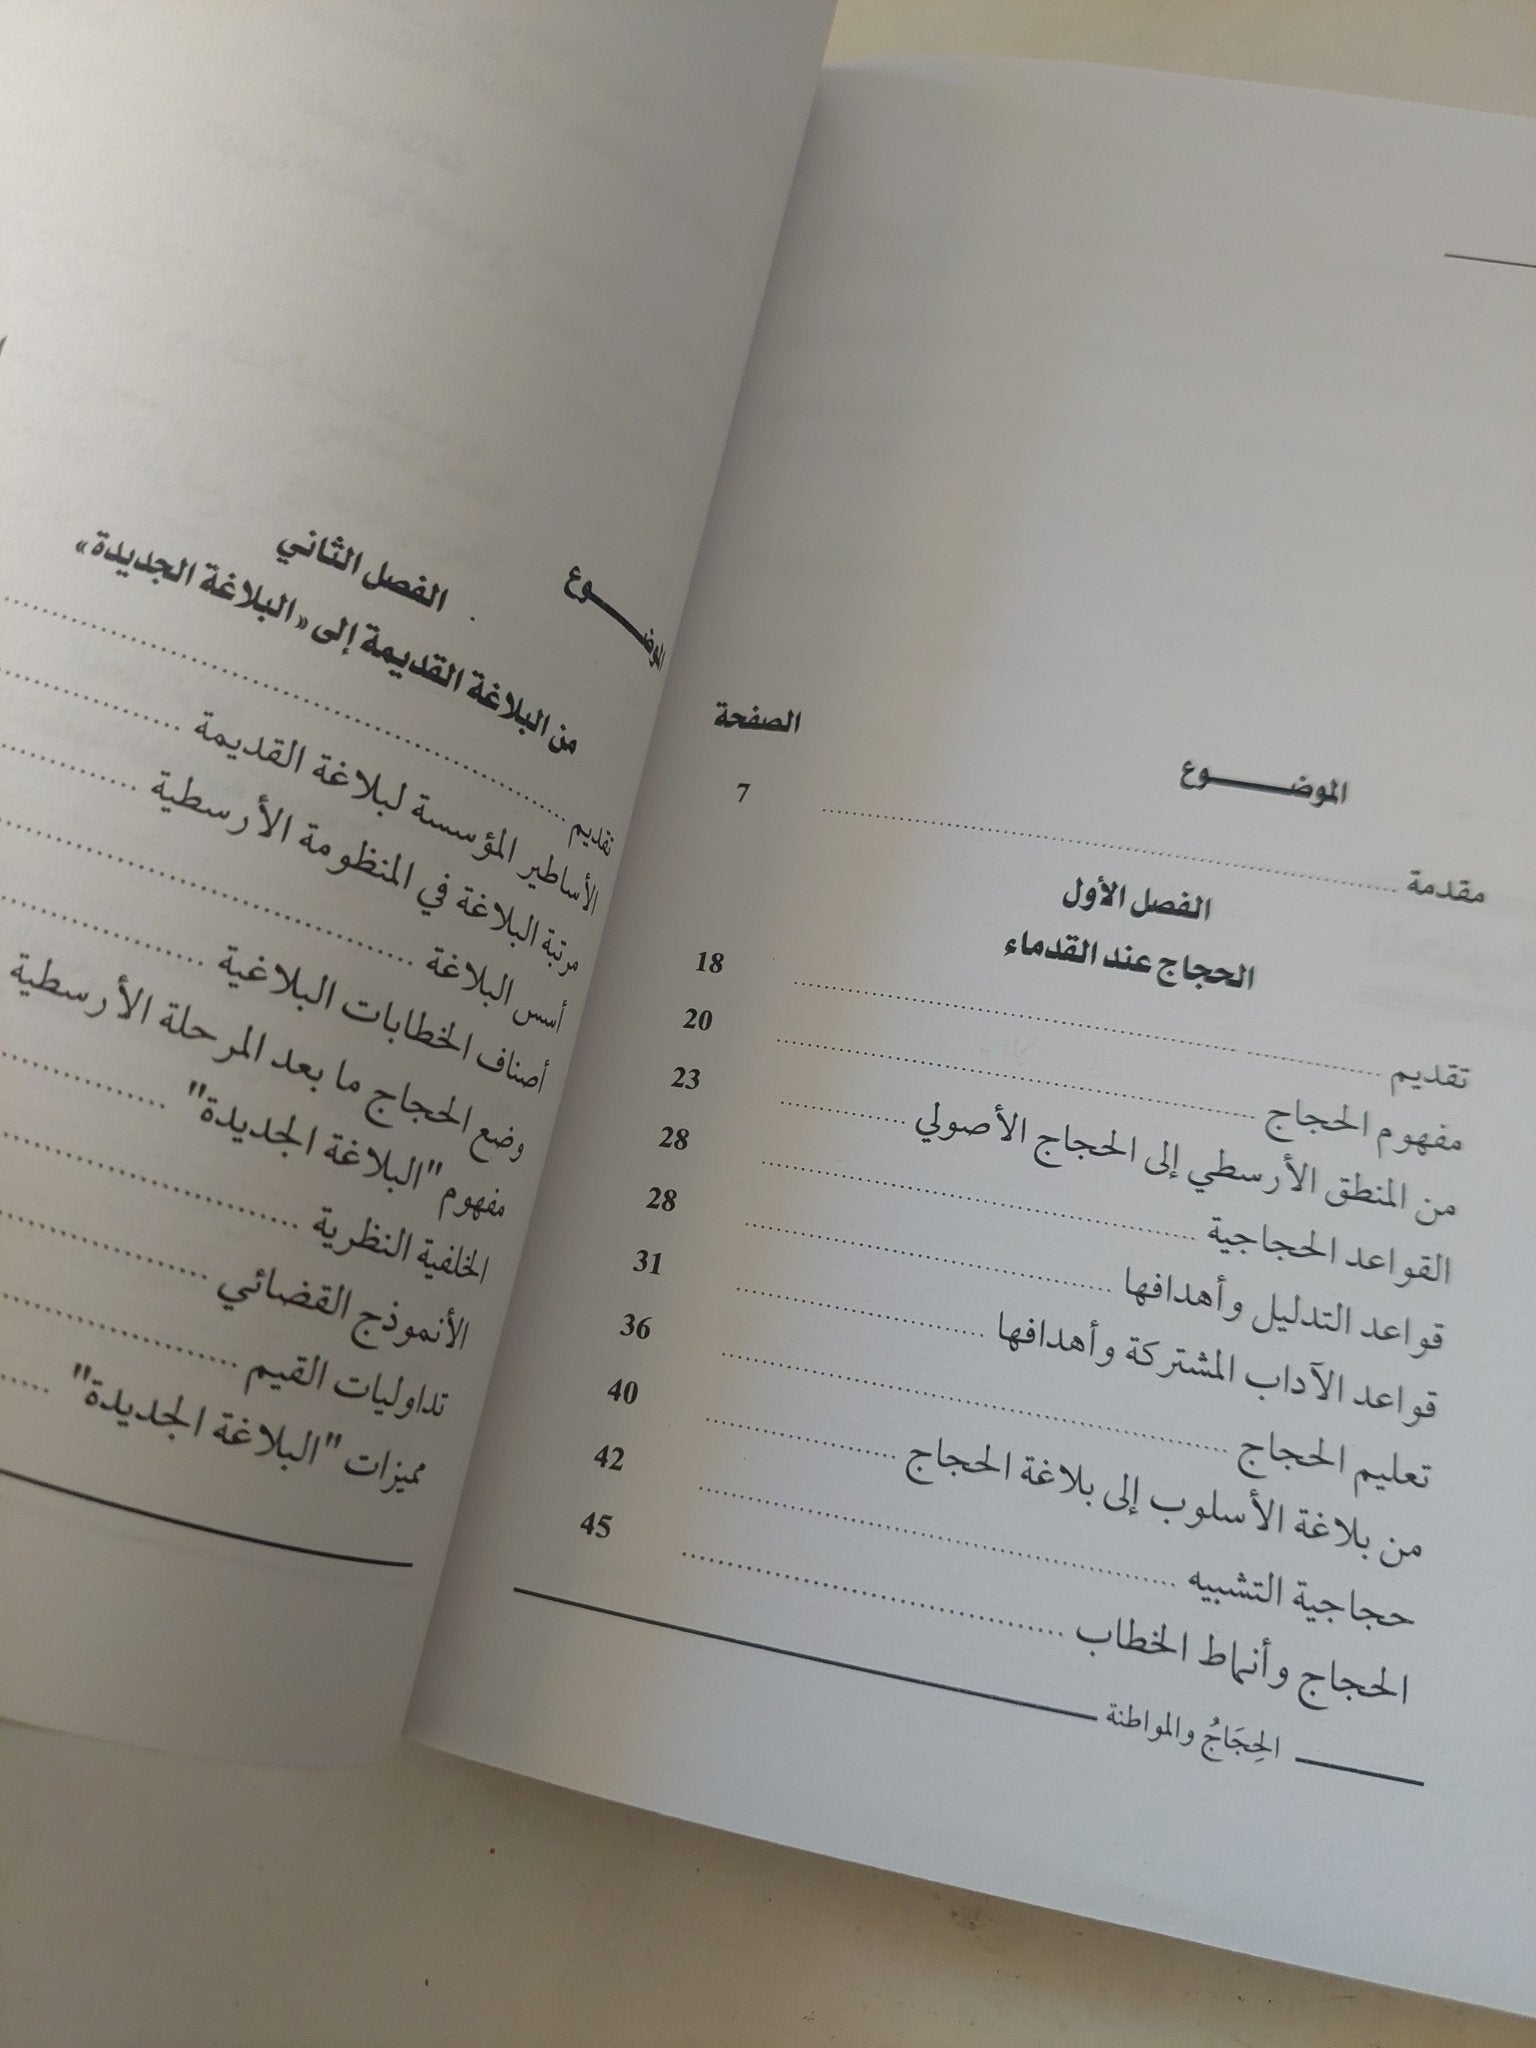 الموضـــــوع الصفحة
مقدمة ........ 7
الفصل الأول
الحجاج عند القدماء
تقديم ........ 18
مفهوم الحجاج ........ 20
من المنطق الأرسطي إلى الحجاج الأصولي ........ 23
القواعد الحجاجية ........ 28
قواعد التدليل وأهدافها ........ 28
قواعد الآداب المشتركة وأهدافها ........ 31
تعليم الحجاج ........ 36
من بلاغة الأسلوب إلى بلاغة الحجاج ........ 40
حجاجية التشبيه ........ 42
الحجاج وأنماط الخطاب ........ 45
الحِجَاجُ والمواطنة
الموضـــــوع
الفصل الثاني
من البلاغة القديمة إلى «البلاغة الجديدة»
تقديم ........
الأساطير المؤسسة لبلاغة القديمة ........
مرتبة البلاغة في المنظومة الأرسطية ........
أسس البلاغة ........
أصناف الخطابات البلاغية ........
وضع الحجاج ما بعد المرحلة الأرسطية
مفهوم "البلاغة الجديدة" ........
الخلفية النظرية ........
الأنموذج القضائي ........
تداوليات القيم ........
مميزات "البلاغة الجديدة" ........